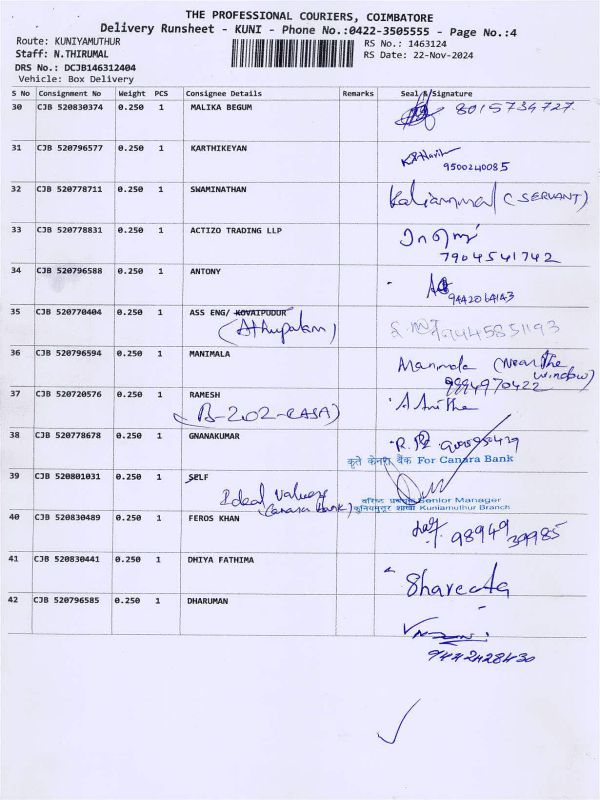 THE PROFESSIONAL COURIERS, COIMBATORE
Delivery Runsheet - KUNI - Phone No.:0422-3505555 - Page No.:4
Route: KUNIYAMUTHUR RS No.: 1463124
Staff: N.THIRUMAL RS Date: 22-Nov-2024
DRS No.: DCJB146312404
Vehicle: Box Delivery
S No Consignment No Weight PCS Consignee Details Remarks Seal & Signature
30 CJB 520830374 0.250 1 MALIKA BEGUM 8015734727
31 CJB 520796577 0.250 1 KARTHIKEYAN
9500240085
32 CJB 520778711 0.250 1 SWAMINATHAN Kaliammal (SERVANT)
33 CJB 520778831 0.250 1 ACTIZO TRADING LLP
7904541742
34 CJB 520796588 0.250 1 ANTONY
9442064143
35 CJB 520770404 0.250 1 ASS ENG/ KOVAIPUDUR
(Athupalam) 9445851193
36 CJB 520796594 0.250 1 MANIMALA Manimala (Near the window)
9894970422
37 CJB 520720576 0.250 1 RAMESH A Anitha
(B-202-CASA)
38 CJB 520778678 0.250 1 GNANAKUMAR
कृते केनरा बैंक For Canara Bank
39 CJB 520801031 0.250 1 SELF
Ideal Values
(Canara Bank)
वरिष्ठ प्रबंधक Senior Manager
कुनियमुत्तूर शाखा Kuniamuthur Branch
40 CJB 520830489 0.250 1 FEROS KHAN 98949 39985
41 CJB 520830441 0.250 1 DHIYA FATHIMA
42 CJB 520796585 0.250 1 DHARUMAN
9442428430